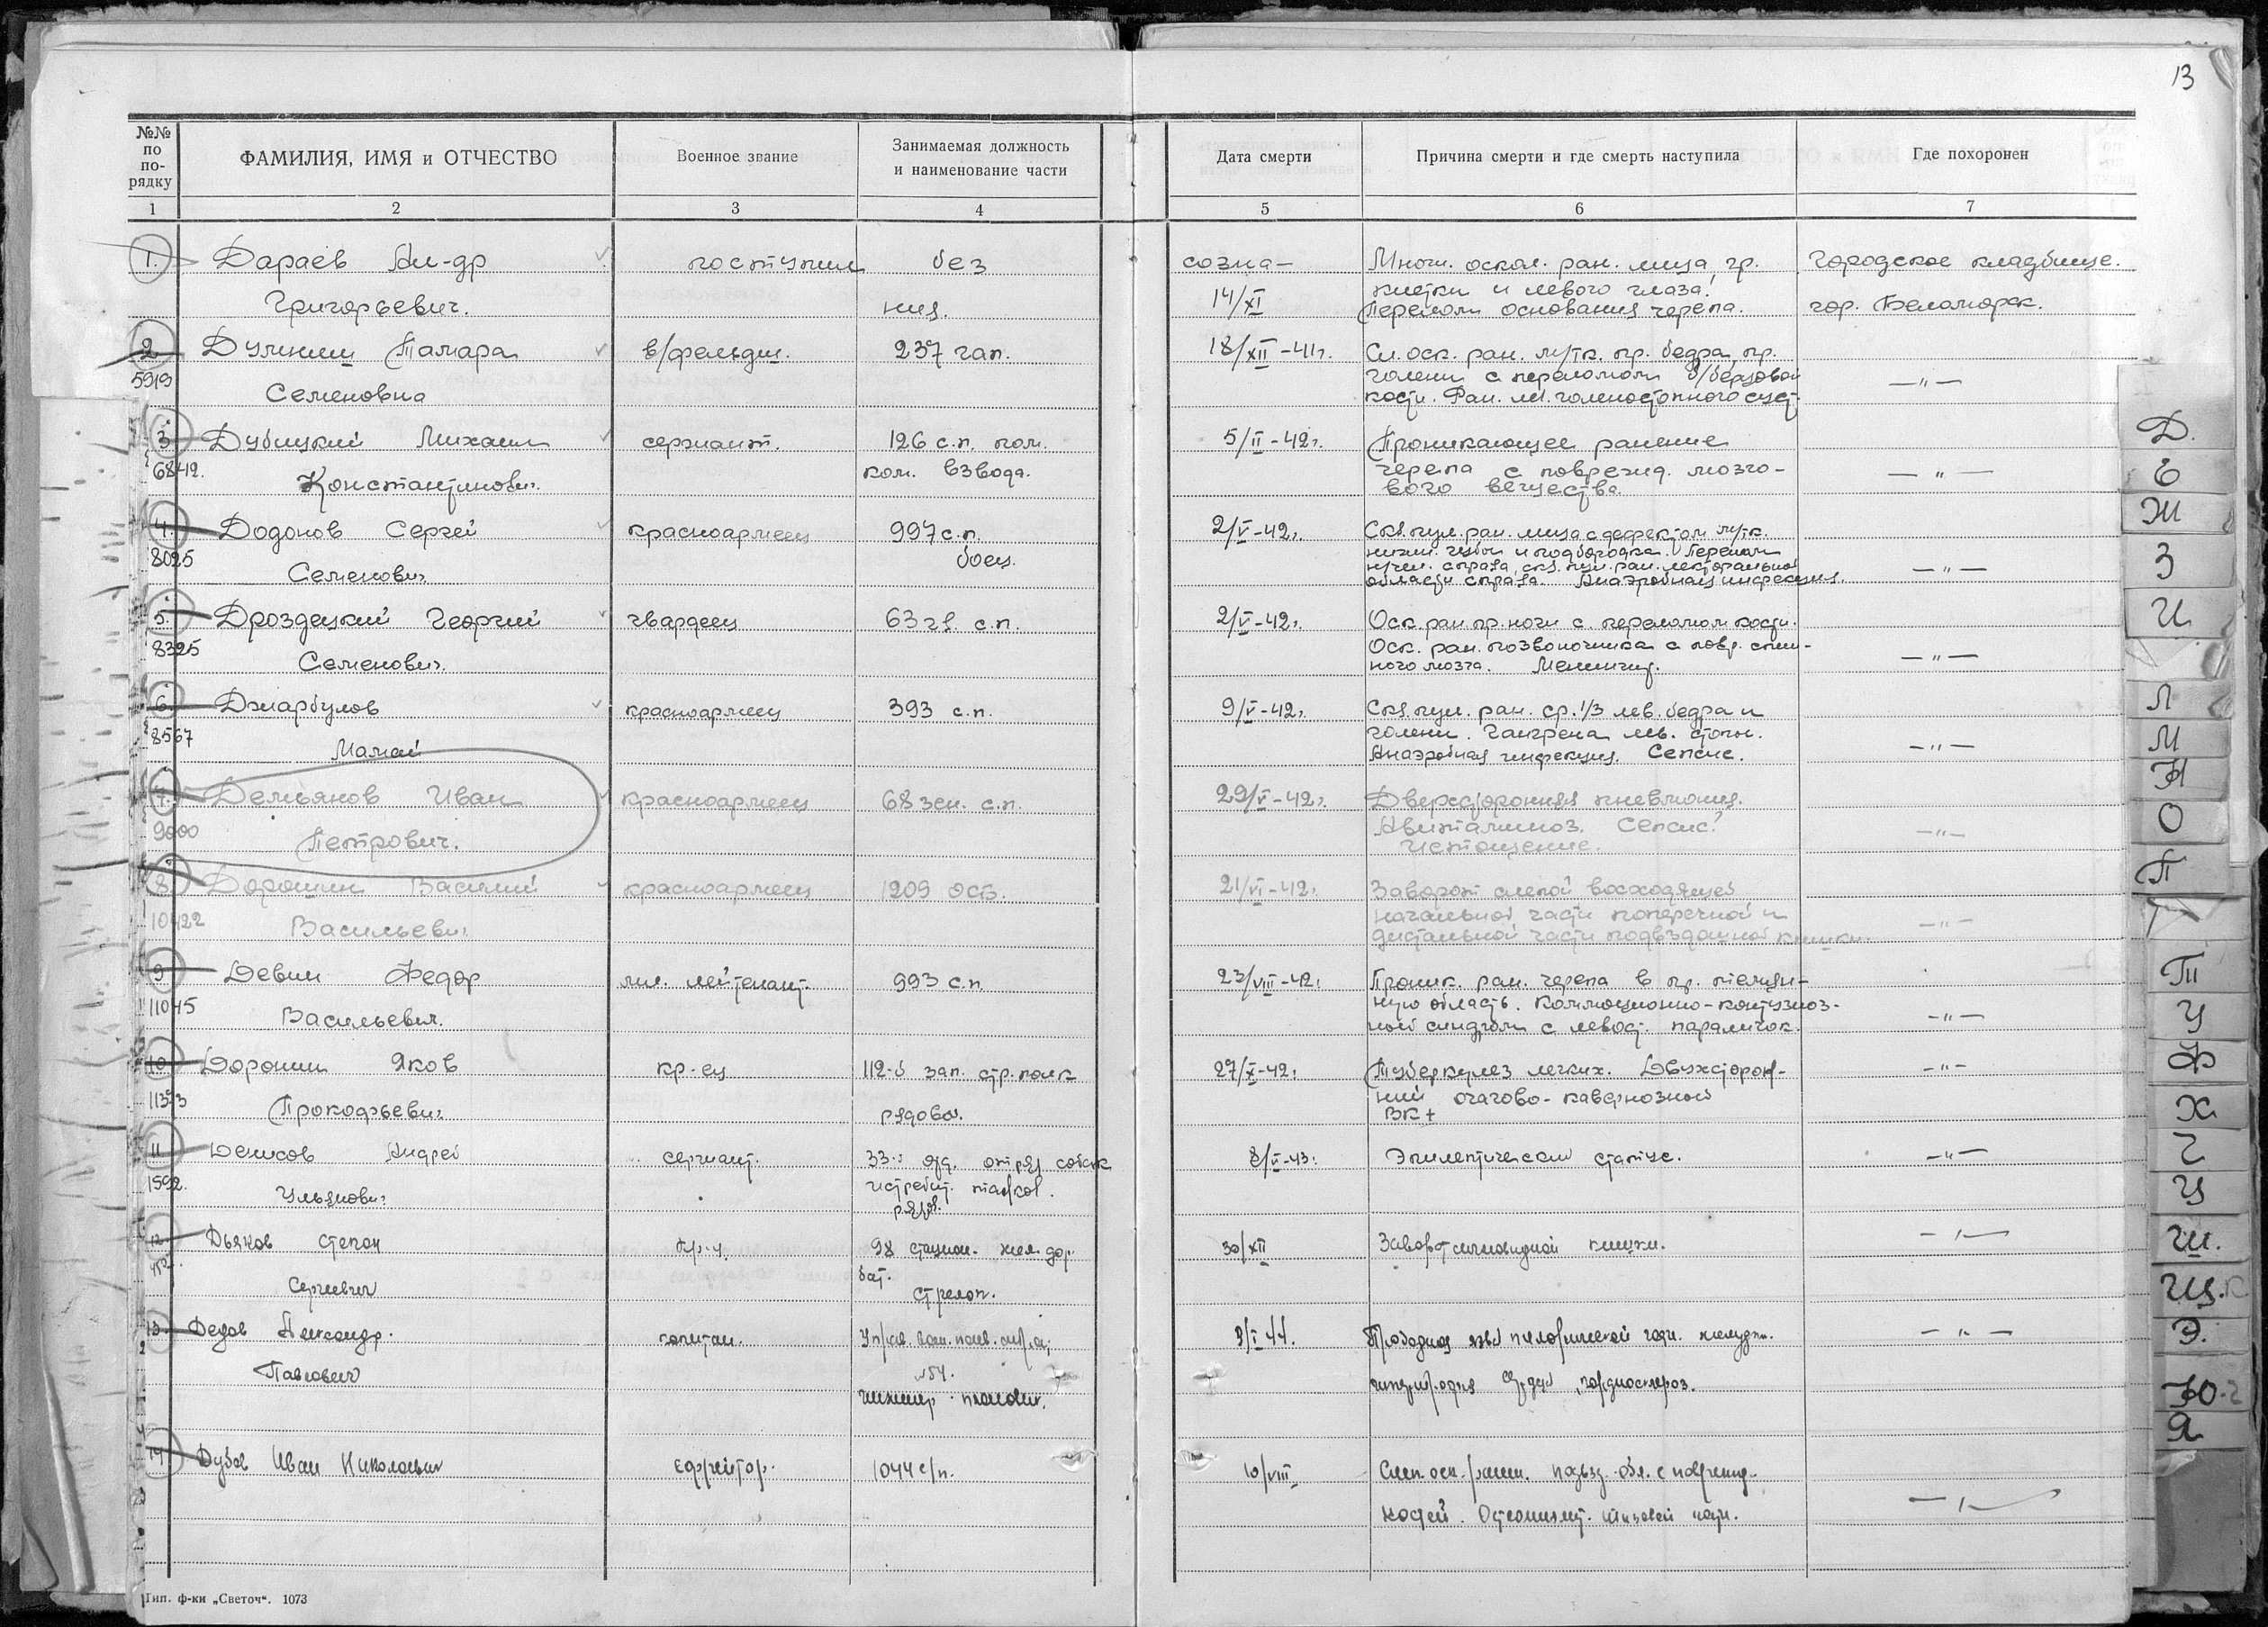 13
№№ по по-рядку
ФАМИЛИЯ, ИМЯ и ОТЧЕСТВО
Военное звание
Занимаемая должность и наименование части
Дата смерти
Причина смерти и где смерть наступила
Где похоронен
1 2 3 4 5 6 7
1. Дараев Ал-др поступил без созна- Множ. оскол. ран. лица, гр. Городское кладбище.
Григорьевич. ния. 14/XI клетки и левого глаза.
Перелом основания черепа. гор. Беломорск.
2 Думкиш Тамара в/фельдш. 237 гап. 18/XII-41г. Сл. оск. ран. м/тк. пр. бедра, пр.
5919 голени с переломом б/берцовой —"—
Семеновна кости. Ран. лев. голеностопного суст.
3 Дубицкий Михаил сержант. 126 с.п. пом. 5/II-42г. Проникающее ранение
6842. Константинович. ком. взвода. черепа с поврежд. мозго- —"—
вого вещества.
4. Додонов Сергей красноармеец 997 с.п. 2/V-42г. Скв. пул. ран. лица с дефектом м/тк.
8025 боец. нижн. губы и подбородка. Перелом
Семенович справа, скв. пул. ран. пекторальной —"—
области справа. Анаэробная инфекция.
5. Дроздецкий Георгий гвардеец 63 гв. с.п. 2/V-42г. Оск. ран. пр. ноги с переломом кости.
8325 Оск. ран. позвоночника с повр. спин-
Семенович. ного мозга. Менингит. —"—
6. Джарбулов красноармеец 393 с.п. 9/V-42г. Скв. пул. ран. ср. 1/3 лев. бедра и
8567 голени. Гангрена лев. стопы.
Мамай Анаэробная инфекция. Сепсис. —"—
7. Демьянов Иван красноармеец 68 зен. с.п. 29/V-42г. Дверсторонняя пневмония.
9000 Авитаминоз. Сепсис. —"—
Петрович. Истощение.
8 Дорошин Василий красноармеец 1209 ост. 21/VI-42г. Заворот слепой восходящей
10422 начальной части поперечной и —"—
Васильевич дистальной части подвздошной кишки.
9 Девин Федор мл. лейтенант. 993 с.п. 23/VIII-42г. Проник. ран. черепа в пр. темен-
11045 ную область. Коммоционно-контузиоз- —"—
Васильевич. ный синдром с левост. параличом.
10 Доронин Яков кр-ец 112-й зап. стр. полк 27/X-42г. Туберкулез легких. Двухсторон- —"—
11373 Прокофьевич рядовой. ний очагово-кавернозный
ВК+
11 Денисов Андрей сержант. 33-й отд. отряд собак 8/V-43г. Эпилептический статус. —"—
1592. Ульянович истребит. танков.
рядов.
12 Дьяков Степан кр-ц. 98 стацион. жел. дор. 30/XII Заворот сигмовидной кишки. —"—
бат.
Сергеевич стрелоч.
13 Дедов Александр. капитан. Упр. 3/I 44. Прободная язва пилорической части желудка. —"—
Павлович №54. сердца, кардиосклероз.
инженер
14 Дубов Иван Николаевич ефрейтор. 1044 с/п. 10/VIII Слеп. оск. ранен. подвзд. обл. с поврежд.
костей. Остеомиелит. тазовой кости. —"—
Тип. ф-ки „Светоч“. 1073
Д.
Е
Ж
З
И
Л
М
Н
О
П
Т
У
Ф
Х
Ч
Ц
Ш.
Щ.
Э.
Ю
Я